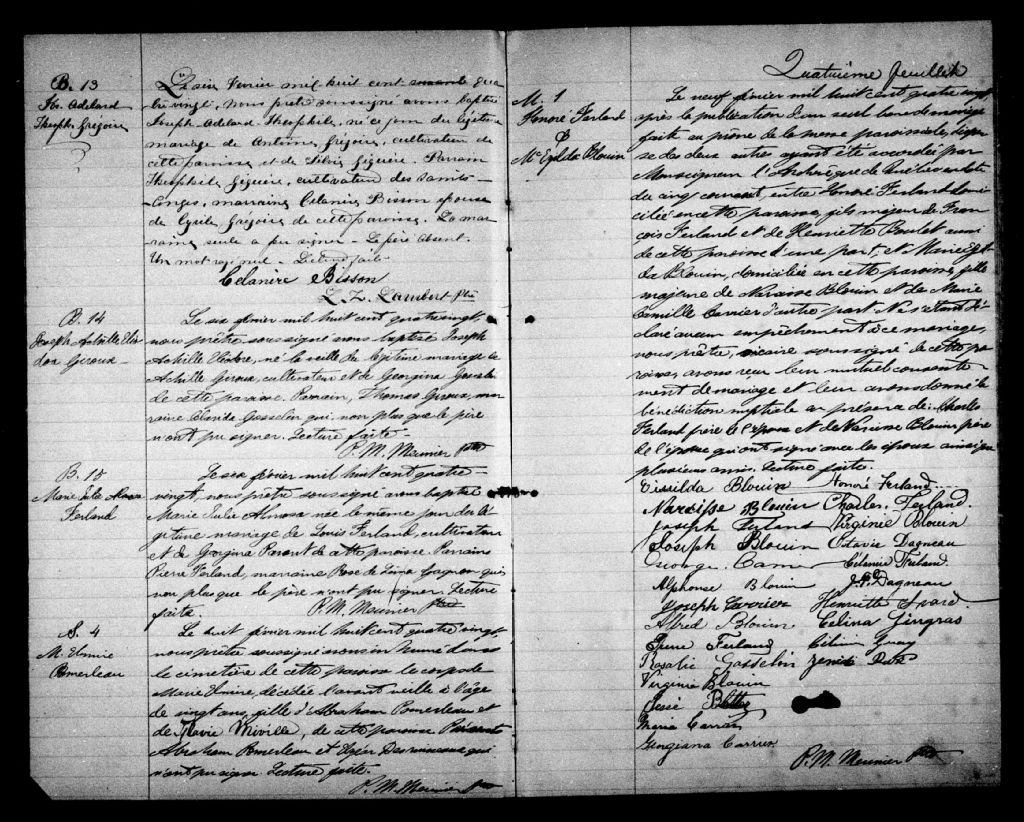 B. 13
Jos. Adelard
Theoph. Grégoire
Le six février mil huit cent quatre
vingt, nous prêtre soussigné avons baptisé
Joseph Adelard Theophile, né ce jour du légitime
mariage de Antoine Grégoire, cultivateur de
cette paroisse et de Silvie Giguère. Parrain
Theophile Giguère, cultivateur des Saints-
Anges, marraine Celanire Bisson épouse
de Cyrile Grégoire de cette paroisse. La mar
raine seule a pu signer. Le père absent.
Un mot rayé nul. Lecture faite.
Celanire Bisson
L. Z. Lambert Ptre
B. 14
Joseph Achille
Giroux
Le six février mil huit cent quatre vingt,
nous prêtre soussigné avons baptisé Joseph
Achille, né la veille du légitime mariage de
Achille Giroux, cultivateur et de Georgina Gosselin
de cette paroisse. Parrain, Thomas Giroux, mar
raine Gosselin qui, non plus que le père
n'ont pu signer. Lecture faite.
P. M. Meunier Ptre
B. 15
Marie Julie
Ferland
Le six février mil huit cent quatre
vingt, nous prêtre soussigné avons baptisé
Marie Julie née le même jour du lé
gitime mariage de Louis Ferland, cultivateur
et de Georgina Parent de cette paroisse Parrain
Pierre Ferland, marraine Rose de Lima Gagnon qui,
non plus que le père n'ont pu signer. Lecture
faite
P. M. Meunier Ptre
S. 4
M. Elmire
Pomerleau
Le huit février mil huit cent quatre vingt
nous prêtre soussigné avons inhumé dans
le cimetière de cette paroisse le corps de
Marie Elmire, décédée l'avant veille à l'âge
de vingt ans, fille d'Abraham Pomerleau et
de Flavie Miville, de cette paroisse Présents
Abraham Pomerleau et qui
n'ont pu signer. Lecture faite.
P. M. Meunier Ptre
Quatrième feuillet
M. 1
Honoré Ferland
&
Mie Exilda Blouin
Le neuf février mil huit cent quatre vingt
après la publication d'un seul ban de mariage
faite au prône de la messe paroissiale, dispen
se des deux autres ayant été accordée par
Monseigneur l'Archevêque de Québec en date
du cinq courant, entre Honoré Ferland domi
cilié en cette paroisse, fils majeur de Fran
çois Ferland et de Henriette Boulet aussi
de cette paroisse d'une part, et Marie Exil
da Blouin, domiciliée en cette paroisse, fille
majeure de Narcisse Blouin et de Marie
Camille Carrier d'autre part Ne s'étant dé
claré aucun empêchement à ce mariage,
nous prêtre, vicaire soussigné de cette pa
roisse, avons reçu leur mutuel consente
ment de mariage et leur avons donné la
bénédiction nuptiale en présence de: Charles
Ferland frère de l'époux et de Narcisse Blouin père
de l'épouse qui ont signé avec les époux ainsi que
plusieurs amis. Lecture faite.
Exilda Blouin Honoré Ferland
Narcisse Blouin Charles. Ferland.
Joseph Ferland Virginie Blouin
Joseph Blouin Octavie Dagneau
George Celanire Ferland
Alphonse Blouin J. Dagneau
Joseph Carrier Henriette
Alfred Blouin Celina Gingras
Pierre Ferland Guay
Rosalie Gosselin
Virginie Blouin
Marie Carrier
Georgiana Carrier
P. M. Meunier Ptre